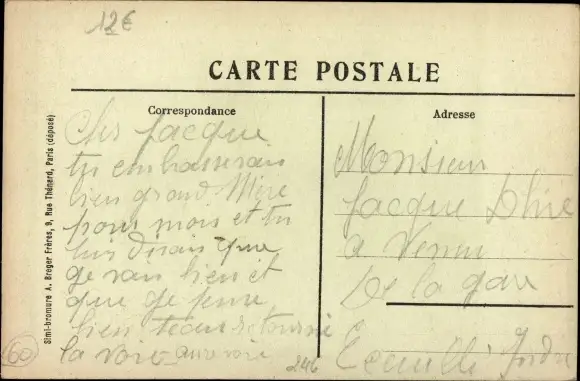 12€
CARTE POSTALE
Correspondance
Adresse
Cher Jacque
tu embrasserais
bien grand Mère
pour mois et tu
lui dirais que
je vais bien et
que je
bien
la voir au revoir
Monsieur
Jacque
a
De la gare
Ecueillé Indre
246
60
Simi-bromure A. Breger Frères, 9, Rue Thénard, Paris (déposé)